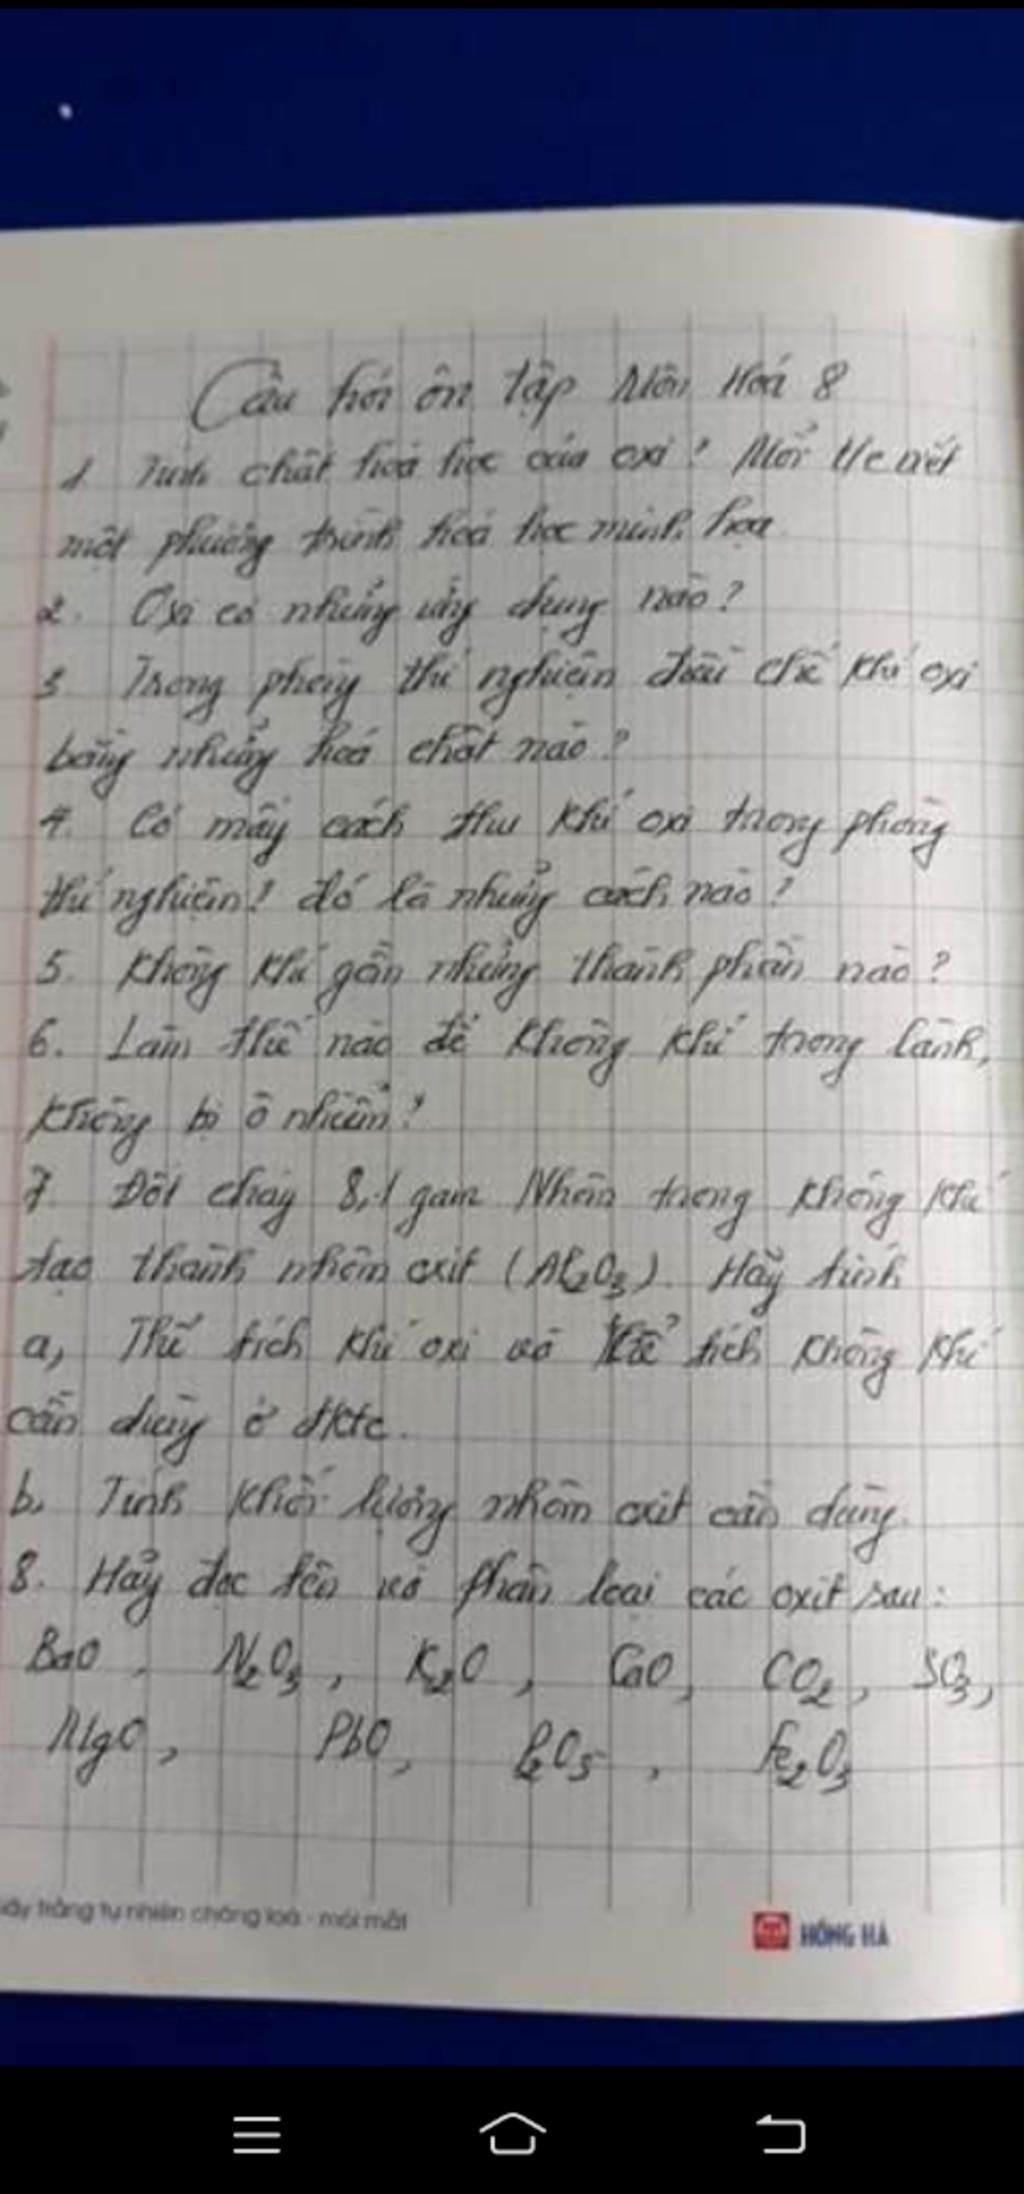 Câu hỏi ôn tập Môn Hoá 8
1 Tính chất hoá học của oxi? Mỗi t/c viết
một phương trình hoá học minh hoạ
2. Oxi có những ứng dụng nào?
3 Trong phòng thí nghiệm điều chế khí oxi
bằng những hoá chất nào?
4. Có mấy cách thu khí oxi trong phòng
thí nghiệm? đó là những cách nào?
5. Không khí gồm những thành phần nào?
6. Làm thế nào để không khí trong lành,
không bị ô nhiễm?
7 Đốt cháy 8,1 gam Nhôm trong không khí
tạo thành nhôm oxit (Al₂O₃). Hãy tính
a, Thể tích khí oxi và thể tích không khí
cần dùng ở đktc.
b, Tính khối lượng nhôm oxit cần dùng.
8. Hãy đọc tên và phân loại các oxit sau:
BaO, N₂O₃, K₂O, CaO, CO₂, SO₃,
MgO, PbO, P₂O₅, Fe₂O₃
giấy trắng tự nhiên chống loá - mỏi mắt
HỒNG HÀ